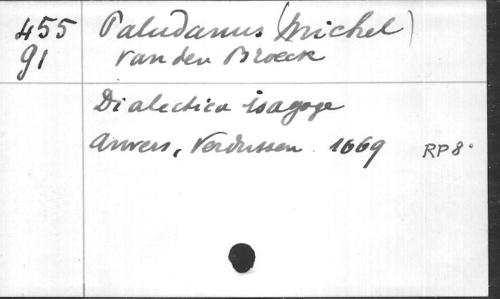 455 Paludanus (Michel)
91 van den Broeck
Dialectica isagoge
Anvers, Verdussen. 1669 RP8°